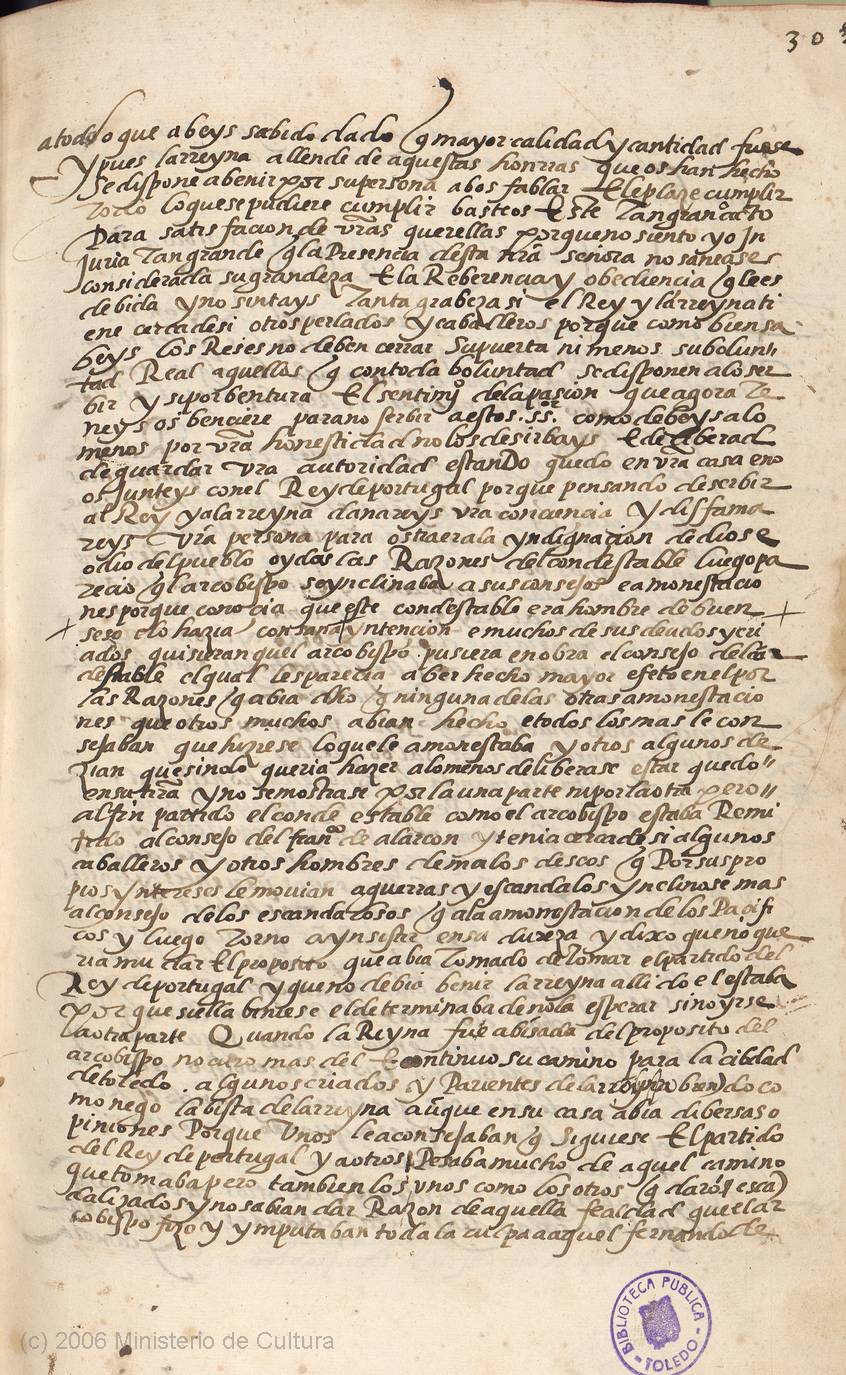 305
a todo lo que abeys sabido dado q̃ mayor calidad y cantidad fuese
y pues la rreyna allende de aquestas honrras que os han hecho
se dispone a benir por su persona a bos fablar E le plaze cumplir
todo lo que se pudiere cumplir basteos Este tan gran acto
para satisfacion de vr̃as querellas porque no siento yo In
juria tan grande q̃ la Presencia desta nr̃a señora no sanease
considerada su grandeza E la Reberencia y obediencia q̃ le es
debida y no sintays tanta grabeza si el Rey y la rreyna ti
ene cerca de si otros perlados y caballeros porque como bien sa
beys los Reies no deben cerrar su puerta ni menos su bolun
tad Real a aquellos q̃ con toda boluntad se disponen a los ser
bir y si por bentura El sentimio de la pasion que agora te
neys os benciere para no serbir a estos .ss.es como debeys a lo
menos por vr̃a honestidad no los desirbays E deliberad
de guardar vr̃a autoridad estando quedo en vr̃a casa e no
os junteys con el Rey de portugal porque pensando deserbir
al Rey y a la rreyna dañareys vr̃a conciencia y disfama
reys vr̃a persona para os traer a la yndignacion de dios e
odio del pueblo oydas las Razones del condestable luego pa
recio q̃ el arcobispo se ynclinaba a sus consejos e amonestacio
nes porque conocia que este condestable era hombre de buen
seso e lo hazia con sana yntencion e muchos de sus deudos y cri
ados quisieran quel arcobispo pusiera en obra el consejo del con
destable el qual les parecia aber hecho mayor efeto en el por
las Razones q̃ abia dho q̃ ninguna de las otras amonestacio
nes que otros muchos abian hecho e todos los mas le con
sejaban que hiziese lo que le amonestaba y otros algunos de
zian que si no lo queria hazer a lo menos deliberase estar quedo
en su tr̃ra y no se mostrase por la una parte ni por la otra pero
al fin partido el condestable como el arcobispo estaba Remi
tido al consejo del franco de alarcon y tenia cerca de si algunos
caballeros y otros hombres de malos deseos q̃ Por sus pro
pios yntereses le movian a guerras y escandalos ynclinose mas
al consejo de los escandalosos q̃ a la amonestacion de los Pacifi
cos y luego torno a ynsistir en su dureza y dixo que no que
ria mudar El proposito que abia tomado de tomar el partido del
Rey de portugal y que no debia benir la rreyna alli do el estaba
Porque si ella biniese el determinaba de no la esperar sino yrse
a otra parte Quando la Reyna fue abisada del proposito del
arcobispo no curo mas del E continuo su camino para la cibdad
de toledo . algunos criados y Parientes del arcobispo biendo co
mo nego la bista de la rreyna aũque en su casa abia dibersas o
piniones Porque unos le aconsejaban q̃ siguiese El partido
del Rey de portugal y a otros Pesaba mucho de aquel camino
que tomaba pero tambien los unos como los otros q̃daron escan
dalizados y no sabian dar Razon de aquella fealdad que el ar
cobispo fizo y ymputaban toda la culpa a aquel fernando de
BIBLIOTECA PUBLICA
TOLEDO
(c) 2006 Ministerio de Cultura